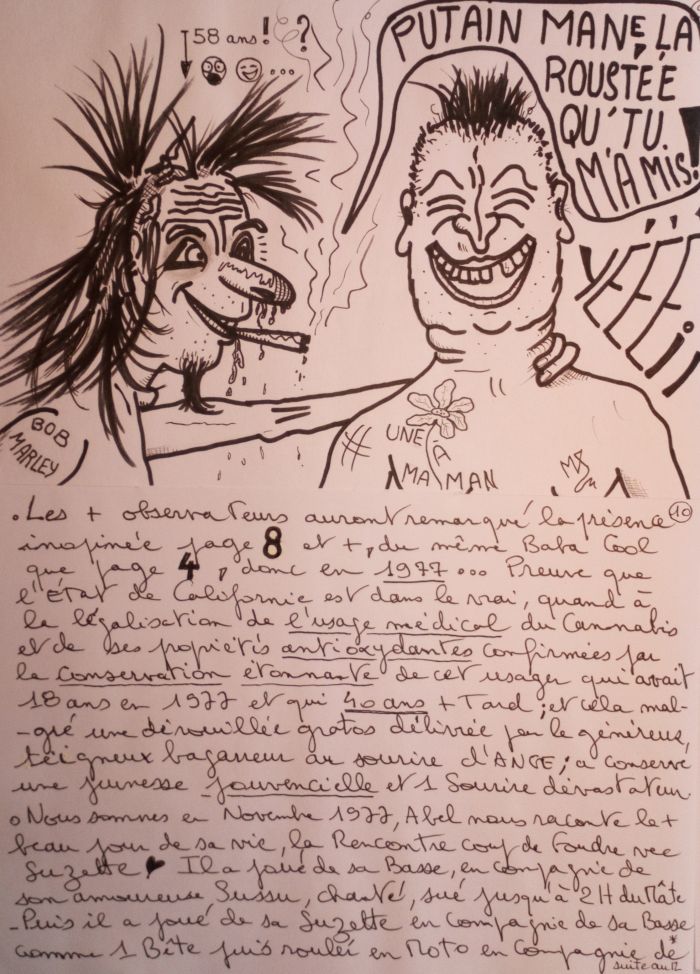 58 ans ! ?
PUTAIN MANE, LA
ROUSTÉE
QU'TU
M'A MIS !
YÉÉÉÉ !
BOB
MARLEY
UNE À
MAMAN
10
• Les + observateurs auront remarqué la présence
inopinée page 8 et +, du même Baba Cool
que page 4, donc en 1977... Preuve que
l'État de Californie est dans le vrai, quand à
la légalisation de l'usage médical du Cannabis
et de ses propiétés antioxydantes confirmées par
la conservation étonnante de cet usager qui avait
18 ans en 1977 et qui 40 ans + Tard ; et cela mal-
-gré une dérouillée gratos délivrée par le généreux,
teigneux bagarreur au sourire d'ANGE ; a conservé
une jeunesse jouvencielle et 1 Sourire dévastateur.
• Nous sommes en Novembre 1977, Abel nous raconte le +
beau jour de sa vie, la Rencontre coup de Foudre avec
Suzette ♥ Il a joué de sa Basse, en compagnie de
son amoureuse, Sussu, chanté, sué jusqu'à 2H du Mât
- Puis il a joué de sa Suzette en compagnie de sa Basse
comme 1 Bête puis roulé en Moto en compagnie de *
suite au 12